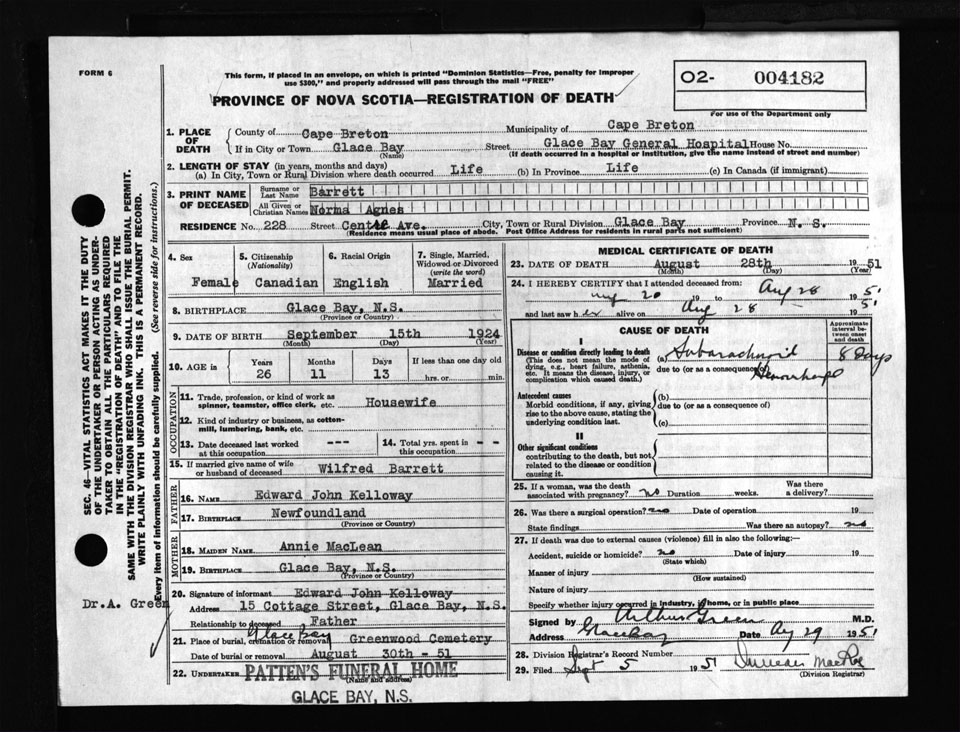 FORM 6
This form, if placed in an envelope, on which is printed "Dominion Statistics—Free, penalty for improper
use $300," and properly addressed will pass through the mail "FREE"
PROVINCE OF NOVA SCOTIA—REGISTRATION OF DEATH
O2- 004182
For use of the Department only
1. PLACE OF DEATH
County of Cape Breton Municipality of Cape Breton
If in City or Town Glace Bay Street Glace Bay General Hospital House No.
(Name) (If death occurred in a hospital or institution, give the name instead of street and number)
2. LENGTH OF STAY (in years, months and days)
(a) In City, Town or Rural Division where death occurred Life (b) In Province Life (c) In Canada (if immigrant)
3. PRINT NAME OF DECEASED
Surname or Last Name Barrett
All Given or Christian Names Norma Agnes
RESIDENCE No. 228 Street Centre Ave. City, Town or Rural Division Glace Bay Province N. S.
(Residence means usual place of abode. Post Office Address for residents in rural parts not sufficient)
4. Sex
Female
5. Citizenship
(Nationality)
Canadian
6. Racial Origin
English
7. Single, Married,
Widowed or Divorced
(write the word)
Married
8. BIRTHPLACE Glace Bay, N.S.
(Province or Country)
9. DATE OF BIRTH September 15th 1924
(Month) (Day) (Year)
10. AGE in
Years Months Days If less than one day old
26 11 13 hrs. or min.
OCCUPATION
11. Trade, profession, or kind of work as
spinner, teamster, office clerk, etc. Housewife
12. Kind of industry or business, as cotton-
mill, lumbering, bank, etc.
13. Date deceased last worked
at this occupation --- 14. Total yrs. spent in
this occupation - -
15. If married give name of wife
or husband of deceased Wilfred Barrett
FATHER
16. NAME Edward John Kelloway
17. BIRTHPLACE Newfoundland
(Province or Country)
MOTHER
18. MAIDEN NAME Annie MacLean
19. BIRTHPLACE Glace Bay, N.S.
(Province or Country)
20. Signature of informant Edward John Kelloway
Address 15 Cottage Street, Glace Bay, N.S.
Relationship to deceased Father
Glace Bay
21. Place of burial, cremation or removal Greenwood Cemetery
Date of burial or removal August 30th - 51
22. UNDERTAKER PATTEN'S FUNERAL HOME
(Name and address)
GLACE BAY, N.S.
MEDICAL CERTIFICATE OF DEATH
23. DATE OF DEATH August 28th 1951
(Month) (Day) (Year)
24. I HEREBY CERTIFY that I attended deceased from:
Aug 20 19 to Aug 28 1951
and last saw her alive on Aug 28 1951
CAUSE OF DEATH
Approximate
interval be-
tween onset
and death
I
Disease or condition directly leading to death
(This does not mean the mode of
dying, e.g., heart failure, asthenia,
etc. It means the disease, injury, or
complication which caused death.)
(a) Subarachnoid 8 days
due to (or as a consequence of)
Hemorrhage
Antecedent causes
Morbid conditions, if any, giving
rise to the above cause, stating the
underlying condition last.
(b)
due to (or as a consequence of)
(c)
II
Other significant conditions
contributing to the death, but not
related to the disease or condition
causing it.
25. If a woman, was the death
associated with pregnancy? no Duration weeks. Was there
a delivery?
26. Was there a surgical operation? no Date of operation 19
State findings Was there an autopsy? no
27. If death was due to external causes (violence) fill in also the following:—
Accident, suicide or homicide? no Date of injury 19
(State which)
Manner of injury
(How sustained)
Nature of injury
Specify whether injury occurred in industry, home, or in public place
Signed by Arthur Green M.D.
Address Glace Bay Date Aug 29 1951
28. Division Registrar's Record Number
29. Filed Sept 5 1951
(Division Registrar)
SEC. 46—VITAL STATISTICS ACT MAKES IT THE DUTY
OF THE UNDERTAKER OR PERSON ACTING AS UNDER-
TAKER TO OBTAIN ALL THE PARTICULARS REQUIRED
IN THE "REGISTRATION OF DEATH" AND TO FILE THE
SAME WITH THE DIVISION REGISTRAR WHO SHALL ISSUE THE BURIAL PERMIT.
WRITE PLAINLY WITH UNFADING INK. THIS IS A PERMANENT RECORD.
Every item of information should be carefully supplied. (See reverse side for instructions.)
Dr.A. Green